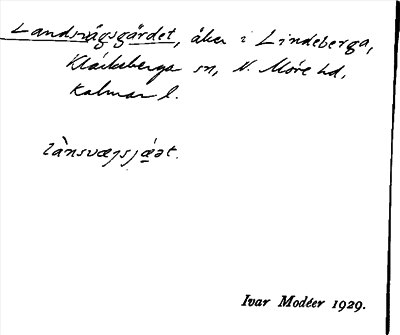 Landsvägsgärdet, åker i Lindeberga,
Kläckeberga sn, N. Möre hd,
Kalmar l.
lànsvægsjǽət.
Ivar Modéer 1929.